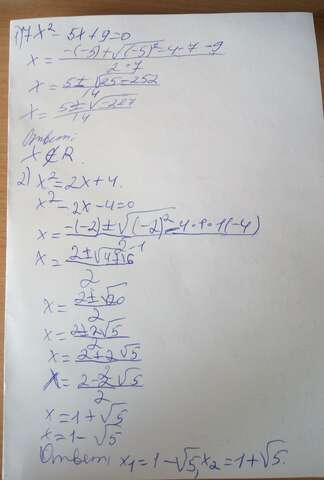 1) 7x² - 5x + 9 = 0
x = (-(-5) ± √(-5)² - 4 · 7 · 9) / (2 · 7)
x = (5 ± √25 - 252) / 14
x = (5 ± √-227) / 14
Ответ:
x ∉ R.
2) x² = 2x + 4.
x² - 2x - 4 = 0
x = (-(-2) ± √(-2)² - 4 · 1 · (-4)) / (2 · 1)
x = (2 ± √4+16) / 2
x = (2 ± √20) / 2
x = (2 ± 2√5) / 2
x = (2 + 2√5) / 2
x = (2 - 2√5) / 2
x = 1 + √5
x = 1 - √5
Ответ: x₁ = 1 - √5, x₂ = 1 + √5.